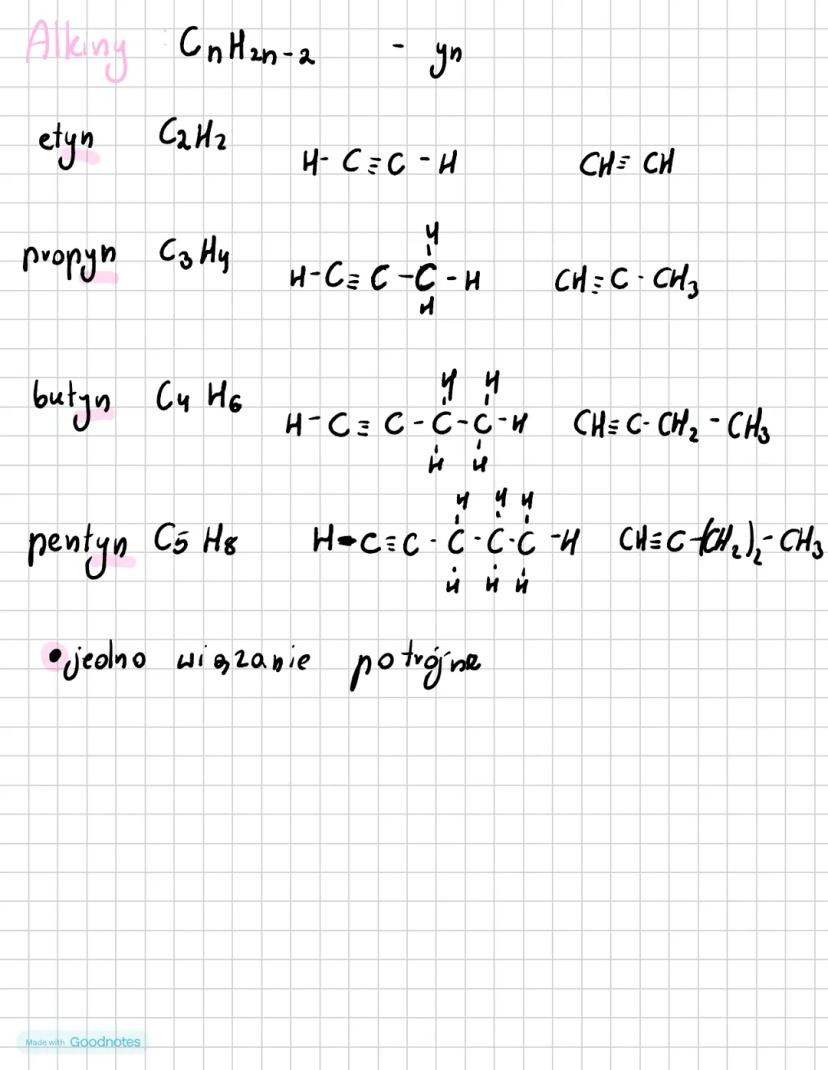 Alkiny CnH2n-2 - yn
etyn C2H2 H-C≡C-H CH≡CH
H
propyn C3H4 H-C≡C-C-H CH≡C-CH3
H
H H
butyn C4H6 H-C≡C-C-C-H CH≡C-CH2-CH3
H H
H H H
pentyn C5H8 H-C≡C-C-C-C-H CH≡C-(CH2)2-CH3
H H H
• jedno wiązanie potrójne
Made with Goodnotes